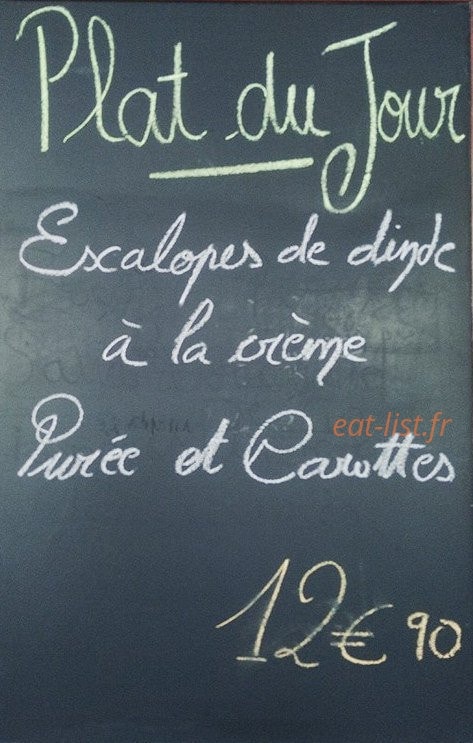 Plat du Jour
Escalopes de dinde
à la crème
eat-list.fr
Purée et Carottes
12€90